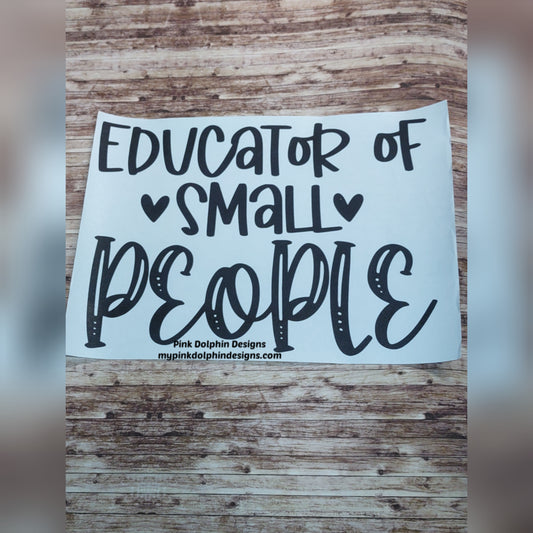 EDUCATOR OF
SMALL
PEOPLE
Pink Dolphin Designs
mypinkdolphindesigns.com